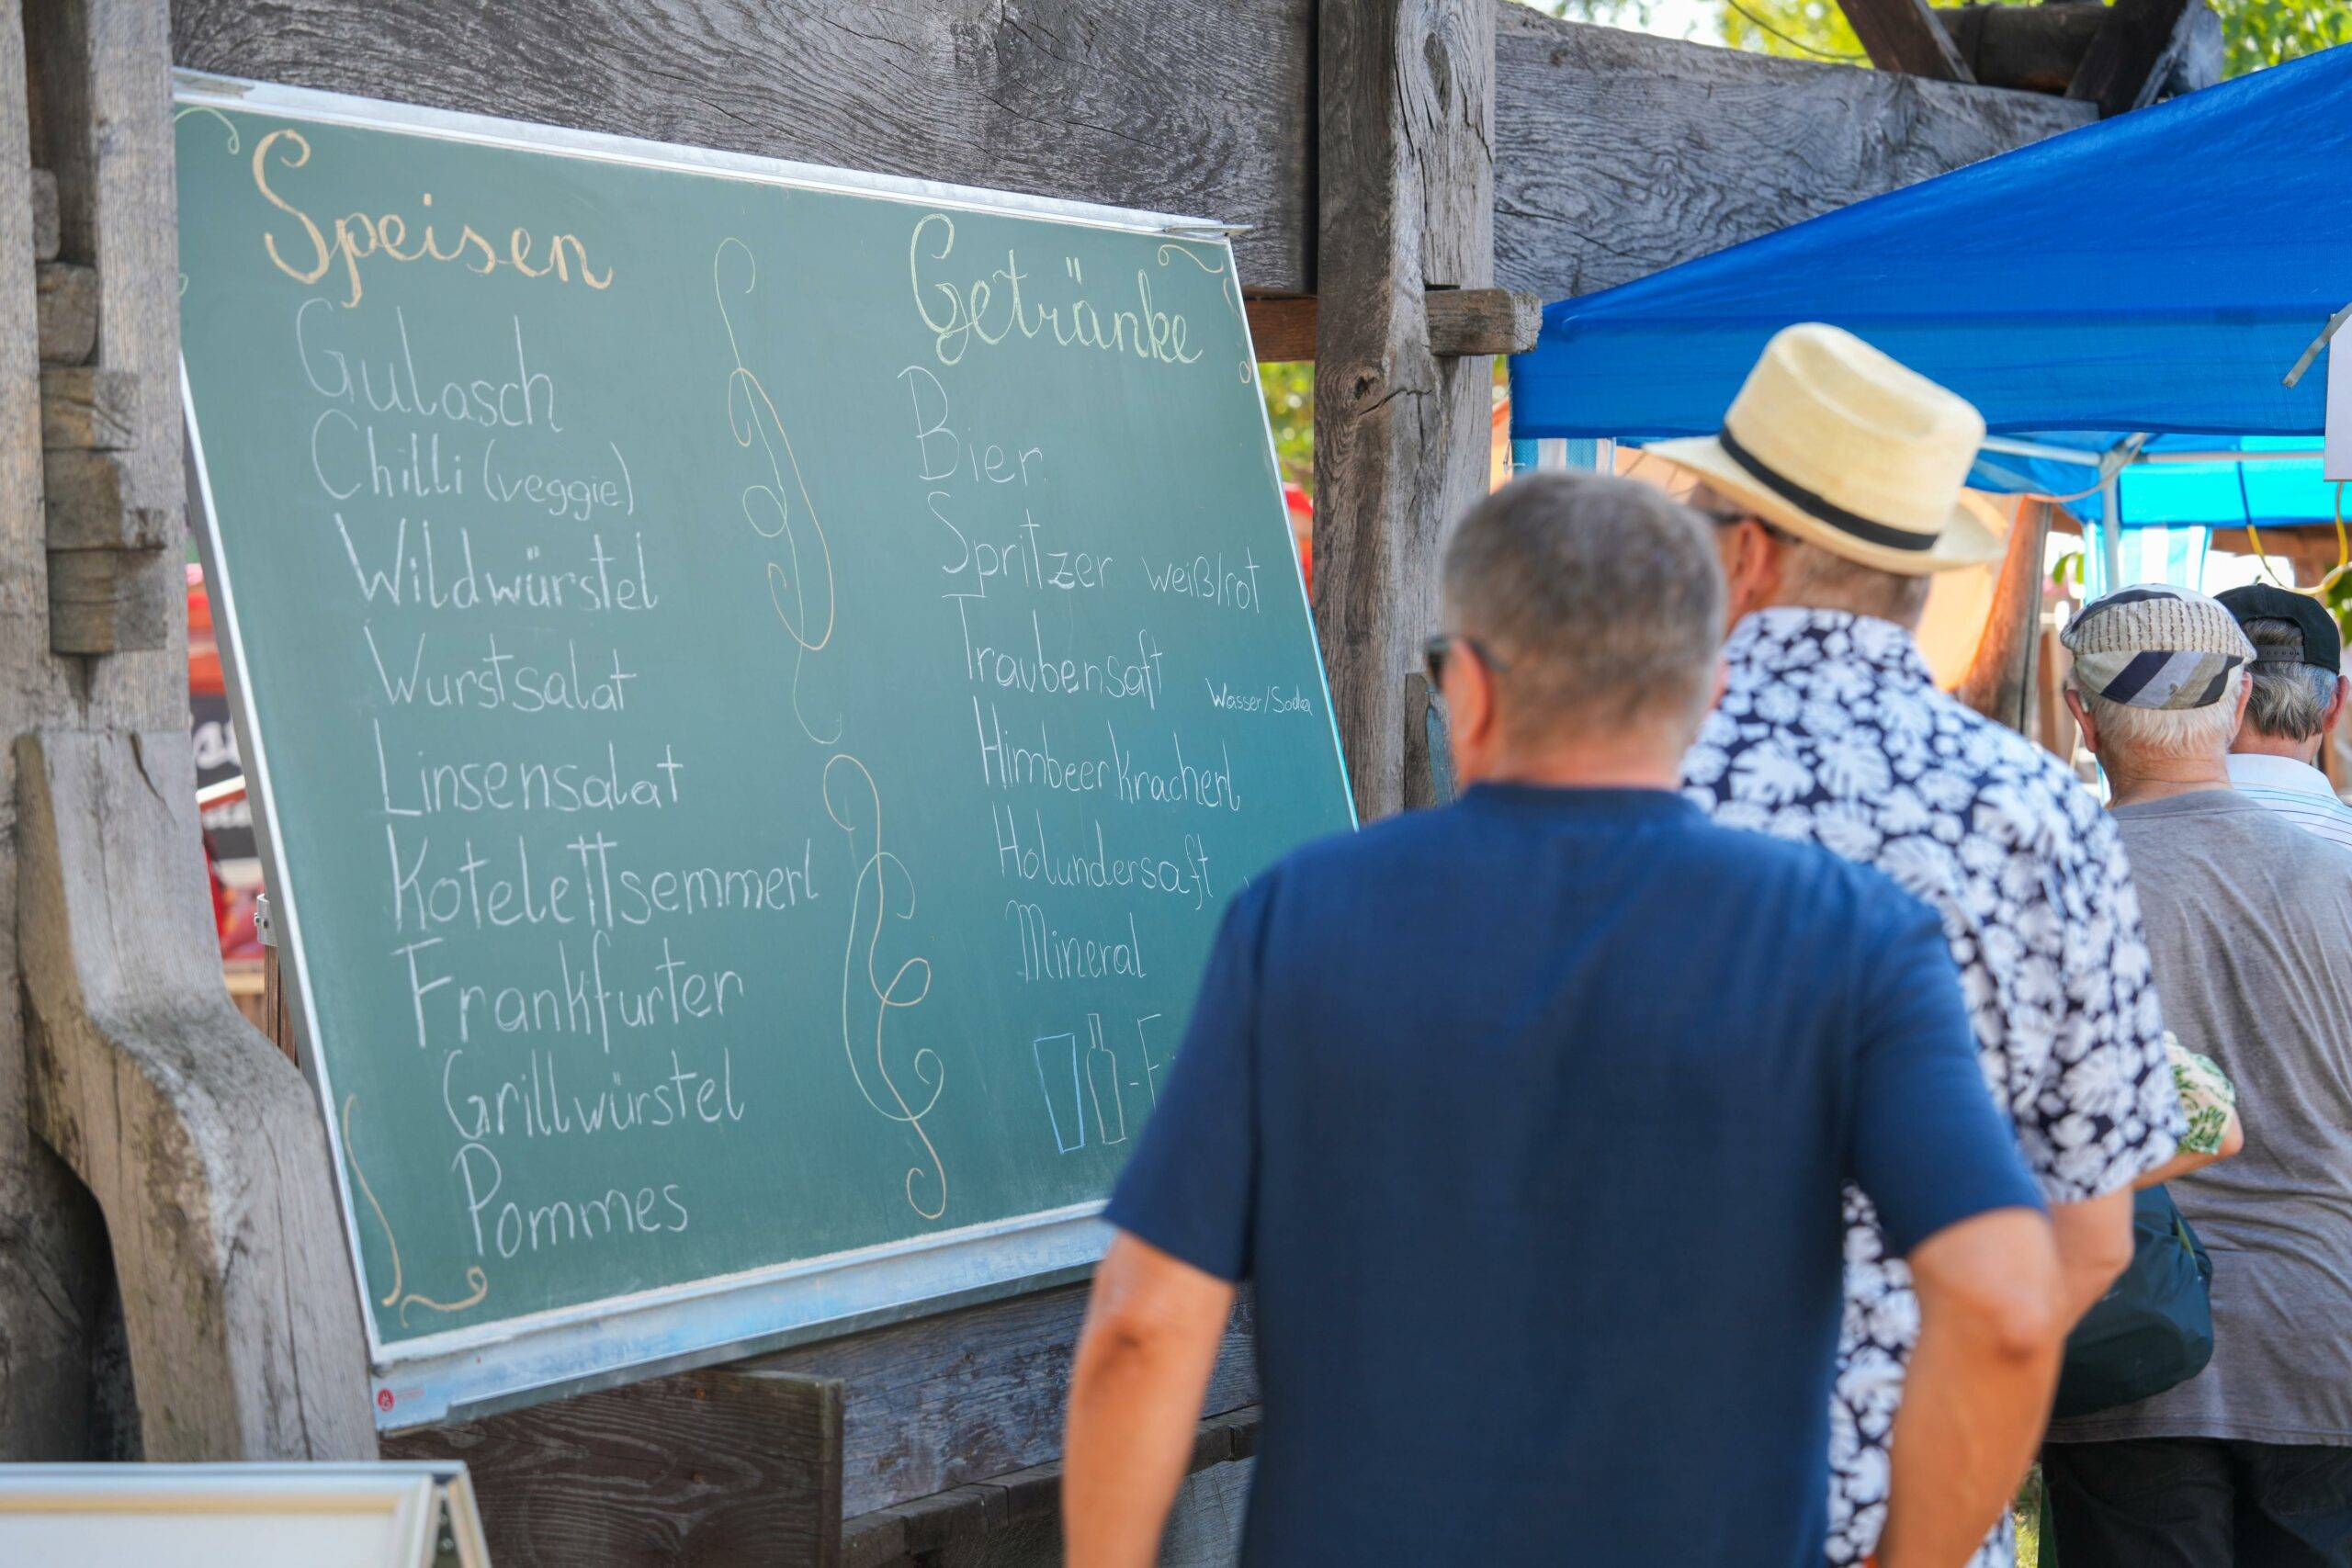 Speisen
Gulasch
Chilli (veggie)
Wildwürstel
Wurstsalat
Linsensalat
Kotelettsemmerl
Frankfurter
Grillwürstel
Pommes
Getränke
Bier
Spritzer weiß/rot
Traubensaft Wasser/Soda
Himbeerkracherl
Holundersaft
Mineral